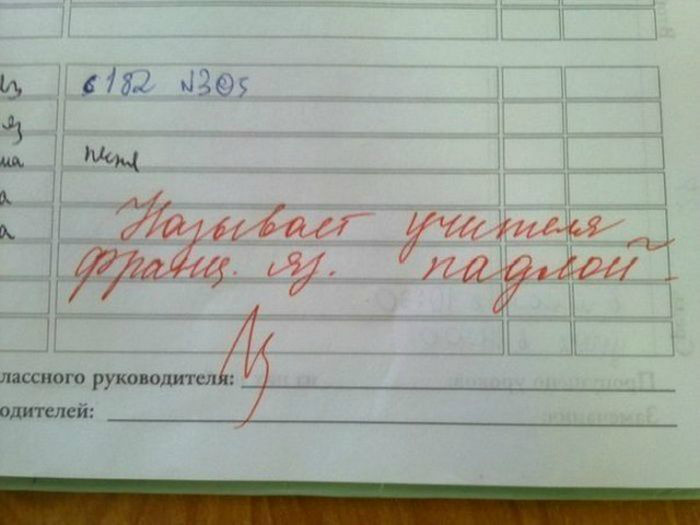 с 182 N305
песня
Называет учителя
франц. яз. падлой
лассного руководителя:
одителей: